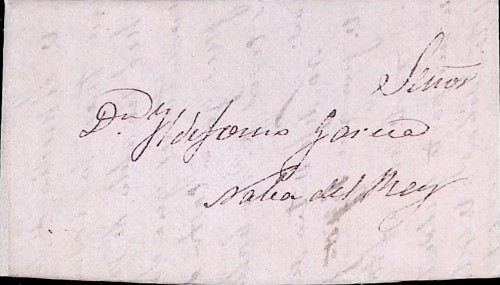 Señor
Dn Yldefonso Garcia
Nava del Rey